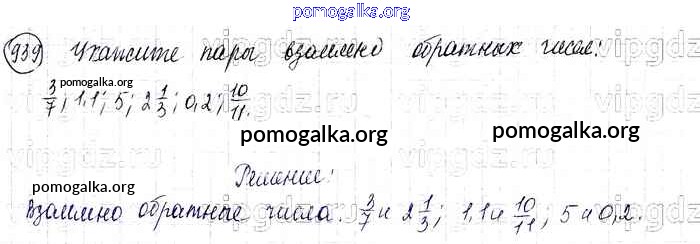 pomogalka.org
939 Укажите пары взаимно обратных чисел:
pomogalka.org
3/7; 1,1; 5; 2 1/3; 0,2; 10/11.
pomogalka.org
pomogalka.org
Решение:
pomogalka.org
Взаимно обратные числа: 3/7 и 2 1/3; 1,1 и 10/11; 5 и 0,2.